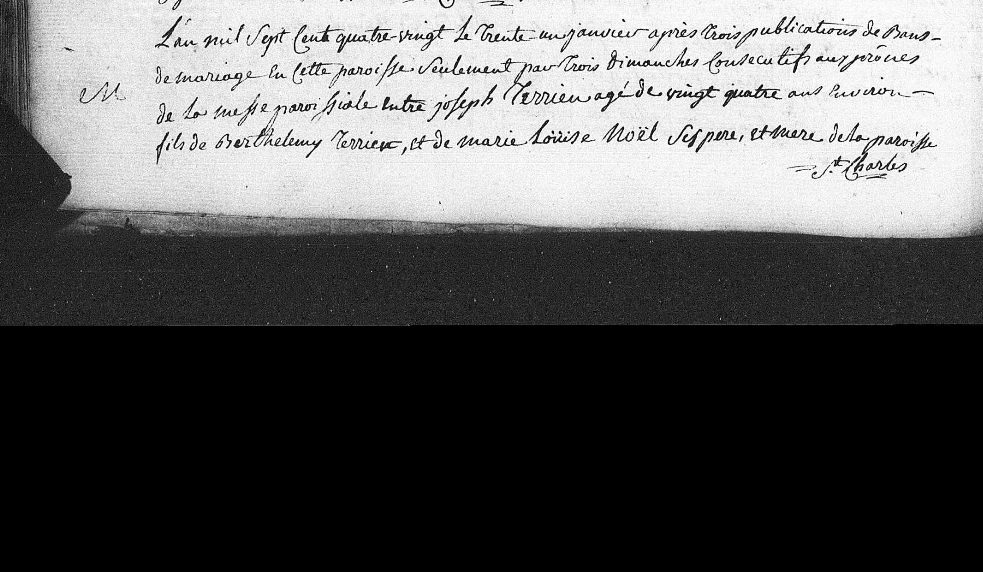 L'an mil Sept Cent quatre-vingt Le Trente un janvier après Trois publications de Bans-
M
de mariage En Cette paroisse Seulement par Trois Dimanches Consecutifs aux prônes
de La messe paroissiale Entre joseph Terrien agé de vingt quatre ans Environ —
fils de Berthelemy Terrien, et de marie Loüise Noël Ses pere, et mere de la paroisse
= St. Charles